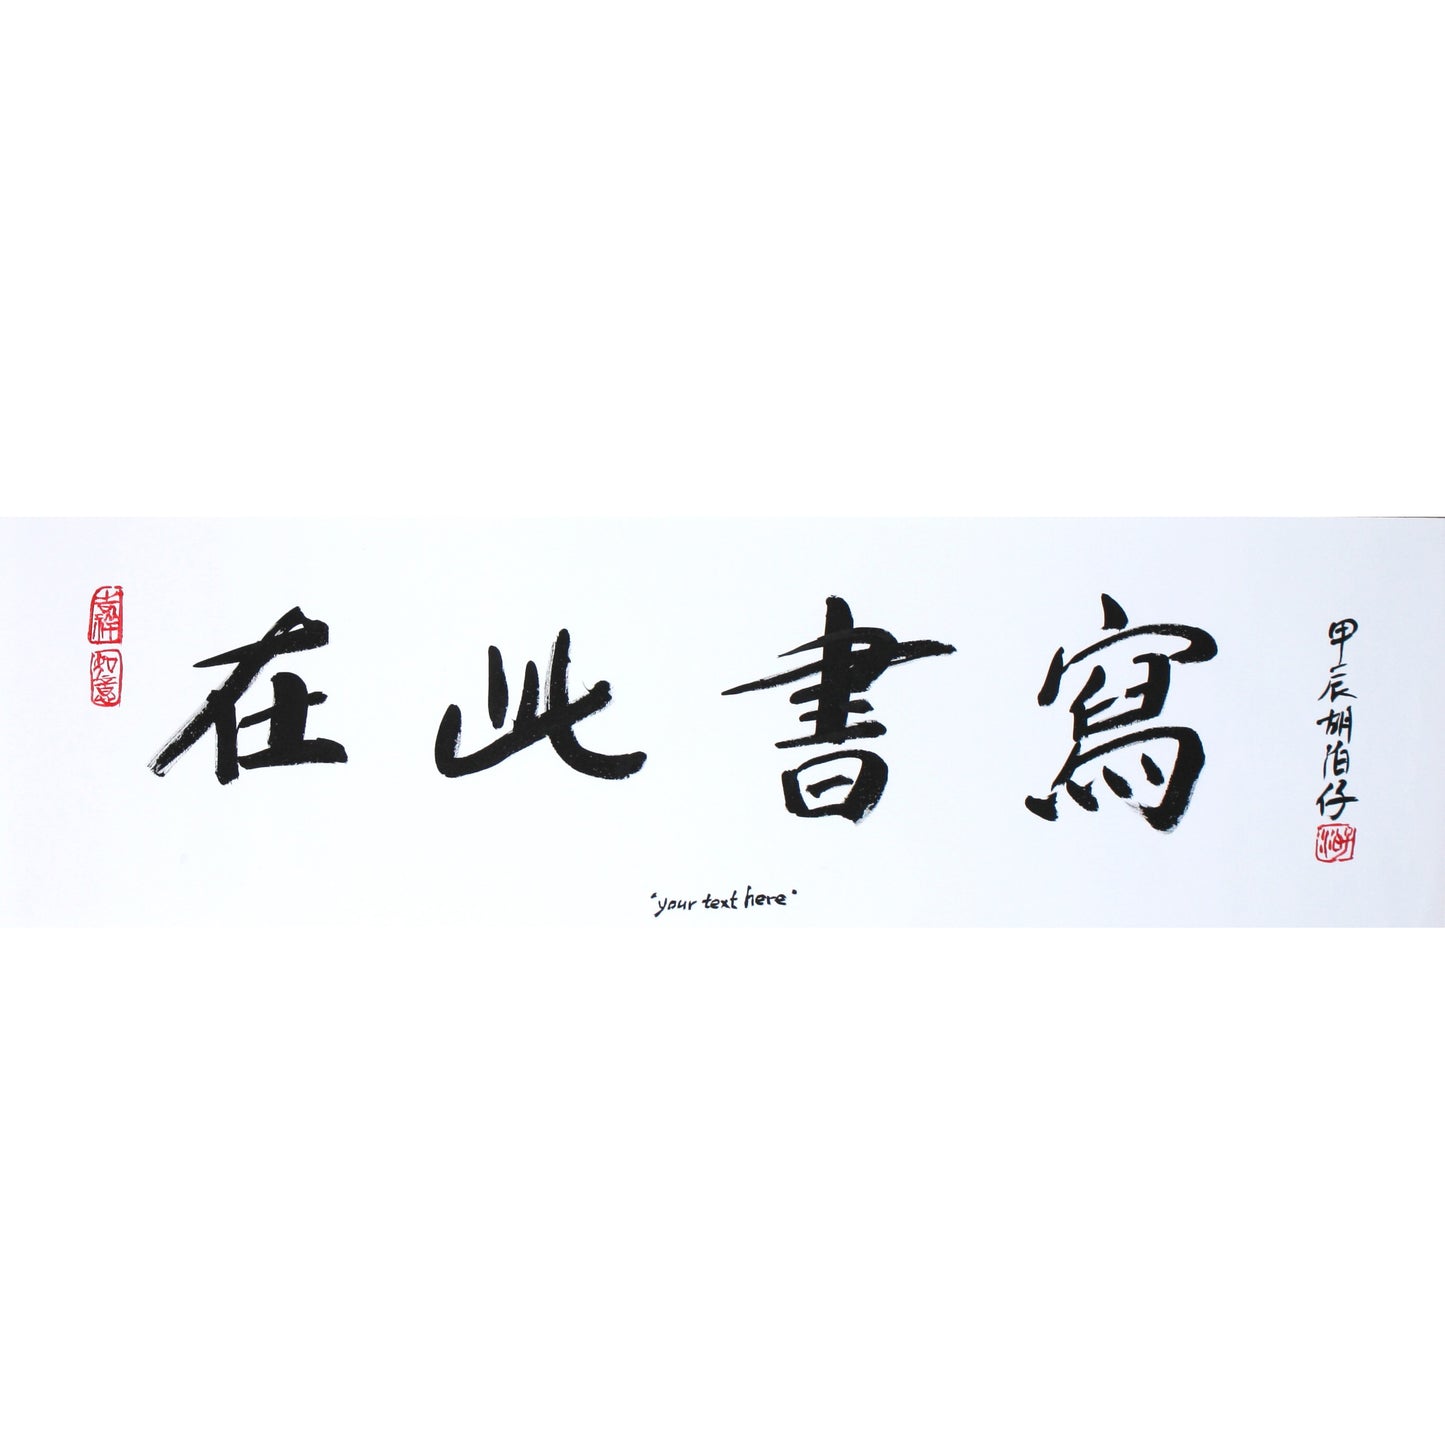 在此書寫
甲辰胡泊仔
吉祥
如意
"your text here"